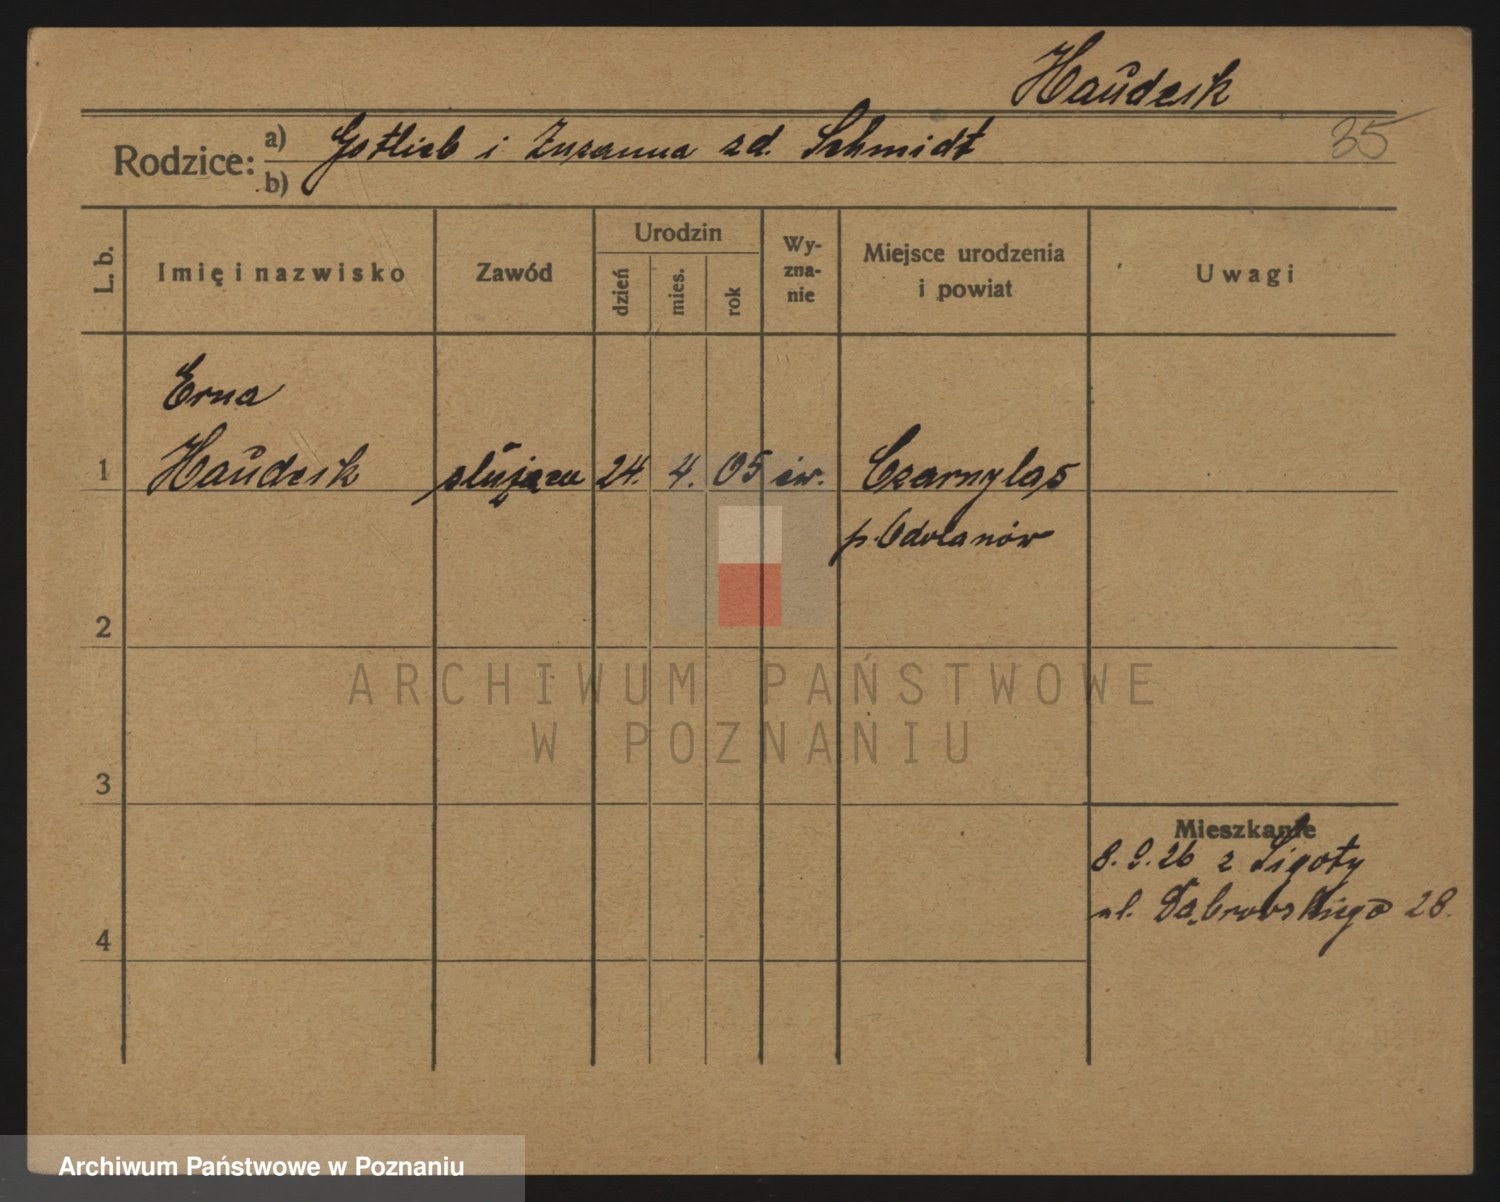 Haŭdzik
35
Rodzice: a) Gotlieb i Zuzanna zd. Schmidt
b)
L. b. Imię i nazwisko Zawód Urodzin dzień mies. rok Wy-zna-nie Miejsce urodzenia i powiat Uwagi
Erna
1 Haŭdzik służąca 24. 4. 05 ew. Czarnylas
p. Odolanów
2
ARCHIWUM PAŃSTWOWE
W POZNANIU
3
Mieszkanie
8. 9. 26 z Ligoty
ul. Dąbrowskiego 28.
4
Archiwum Państwowe w Poznaniu